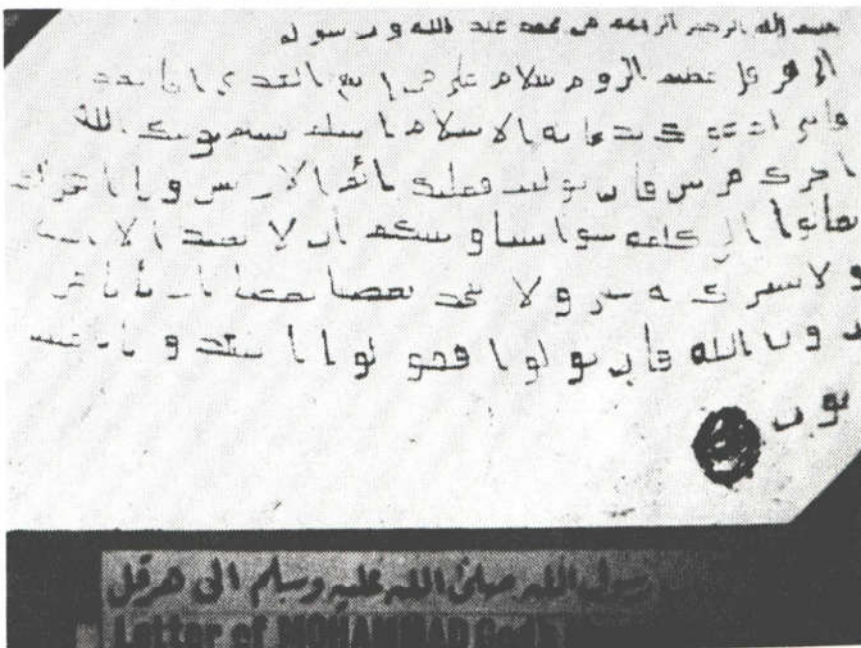 بسم الله الرحمن الرحيم من محمد عبد الله و رسوله
الى هرقل عظيم الروم سلام على من اتبع الهدى اما بعد
فانى ادعوك بدعاية الاسلام اسلم تسلم يوتك الله
اجرك مرتين فان توليت فعليك اثم الاريسين ويا اهل
تعالوا الى كلمة سوا بيننا وبينكم ان لا نعبد الا الله
ولا نشرك به شيا ولا يتخذ بعضنا بعضا اربابا من
دون الله فان تولوا فقولوا اشهدوا بانا مسلـ
مون
رسول الله صلى الله عليه وسلم الى هرقل
Letter of MOHAMMAD God's